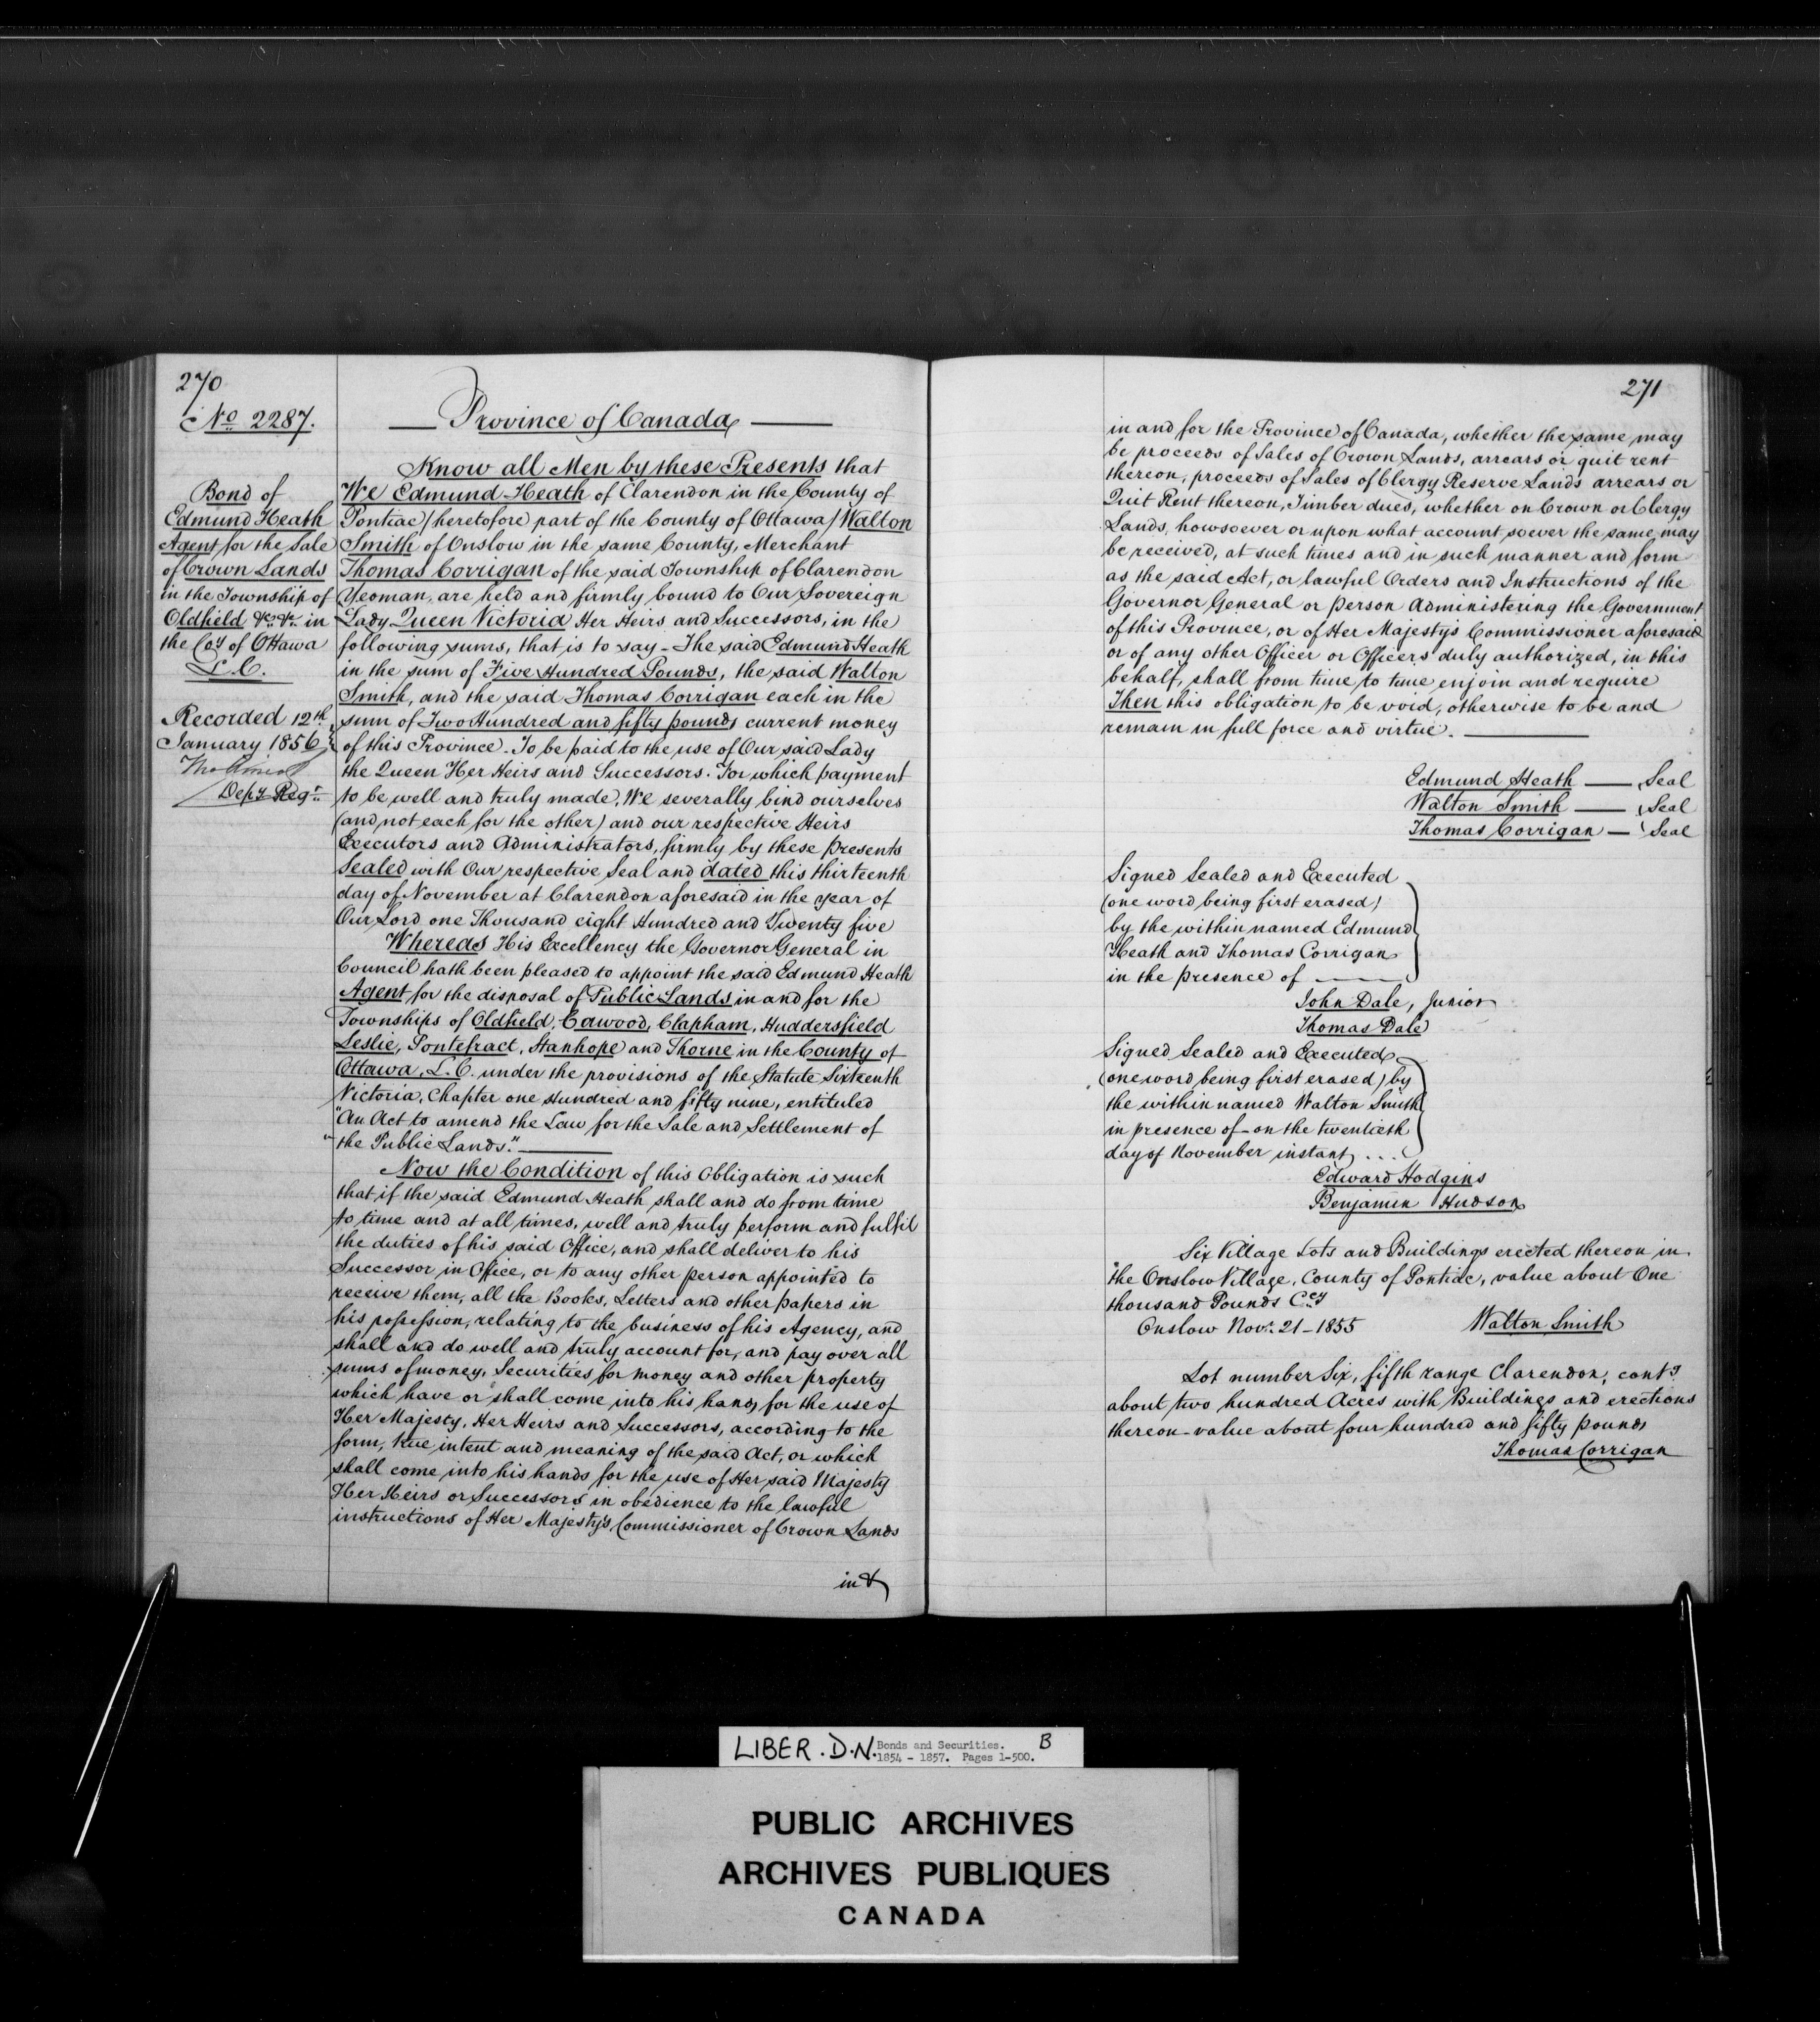 270
No 2287.
Province of Canada
Bond of
Edmund Heath
Agent for the Sale
of Crown Lands
in the Township of
Oldfield &c &c in
the Coy of Ottawa
L.C.
Recorded 12th
January 1856
Depy Regr
Know all Men by these Presents that
We Edmund Heath of Clarendon in the County of
Pontiac / heretofore part of the County of Ottawa / Walton
Smith of Onslow in the same County, Merchant
Thomas Corrigan of the said Township of Clarendon
Yeoman, are held and firmly bound to Our Sovereign
Lady Queen Victoria Her Heirs and Successors, in the
following sums, that is to say - The said Edmund Heath
in the sum of Five Hundred Pounds, the said Walton
Smith, and the said Thomas Corrigan each in the
sum of Two Hundred and fifty pounds current money
of this Province. To be paid to the use of Our said Lady
the Queen Her Heirs and Successors. For which payment
to be well and truly made, We severally bind ourselves
(and not each for the other) and our respective Heirs
Executors and Administrators, firmly by these presents
Sealed with Our respective Seal and dated this thirteenth
day of November at Clarendon aforesaid in the year of
Our Lord one Thousand eight Hundred and Twenty five
Whereas His Excellency the Governor General in
Council hath been pleased to appoint the said Edmund Heath
Agent for the disposal of Public Lands in and for the
Townships of Oldfield, Cawood, Clapham, Huddersfield
Leslie, Pontefract, Stanhope and Thorne in the County of
Ottawa, L.C. under the provisions of the Statute Sixteenth
Victoria, Chapter one Hundred and fifty nine, entituled
"An Act to amend the Law for the Sale and Settlement of
"the Public Lands."
Now the Condition of this Obligation is such
that if the said Edmund Heath shall and do from time
to time and at all times, well and truly perform and fulfil
the duties of his said Office, and shall deliver to his
Successor in Office, or to any other person appointed to
receive them, all the Books, Letters and other papers in
his possession, relating to the business of his Agency, and
shall and do well and truly account for, and pay over all
sums of money, Securities for money and other property
which have or shall come into his hands for the use of
Her Majesty, Her Heirs and Successors, according to the
form, true intent and meaning of the said Act, or which
shall come into his hands for the use of Her said Majesty
Her Heirs or Successors in obedience to the lawful
instructions of Her Majesty's Commissioner of Crown Lands
in &
271
in and for the Province of Canada, whether the same may
be proceeds of Sales of Crown Lands, arrears or quit rent
thereon, proceeds of Sales of Clergy Reserve Lands arrears or
Quit Rent thereon, Timber dues, whether on Crown or Clergy
Lands, howsoever or upon what account soever the same may
be received, at such times and in such manner and form
as the said Act, or lawful Orders and Instructions of the
Governor General or person Administering the Government
of this Province, or of Her Majesty's Commissioner aforesaid
or of any other Officer or Officers duly authorized, in this
behalf, shall from time to time enjoin and require
Then this obligation to be void, otherwise to be and
remain in full force and virtue.
Edmund Heath — Seal
Walton Smith — Seal
Thomas Corrigan — Seal
Signed Sealed and Executed
(one word being first erased)
by the within named Edmund
Heath and Thomas Corrigan
in the presence of
John Dale, Junior
Thomas Dale
Signed Sealed and Executed
(one word being first erased) by
the within named Walton Smith
in presence of - on the twentieth
day of November instant ...
Edward Hodgins
Benjamin Hudson
Six Village Lots and Buildings erected thereon in
the Onslow Village, County of Pontiac, value about One
thousand Pounds Ccy
Onslow Novr 21 - 1855 Walton Smith
Lot number Six, fifth range Clarendon, contg
about two hundred Acres with Buildings and erections
thereon - value about four hundred and fifty pounds
Thomas Corrigan
LIBER. D.N. Bonds and Securities. B
1854 - 1857. Pages 1-500.
PUBLIC ARCHIVES
ARCHIVES PUBLIQUES
CANADA